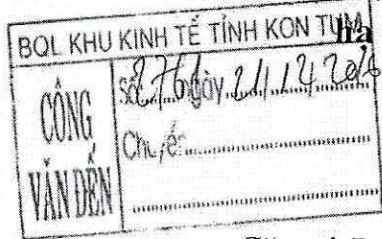 BQL KHU KINH TẾ TỈNH KON TUM
CÔNG VĂN ĐẾN
Số: 2761
Ngày 21/12/2016
Chuyển